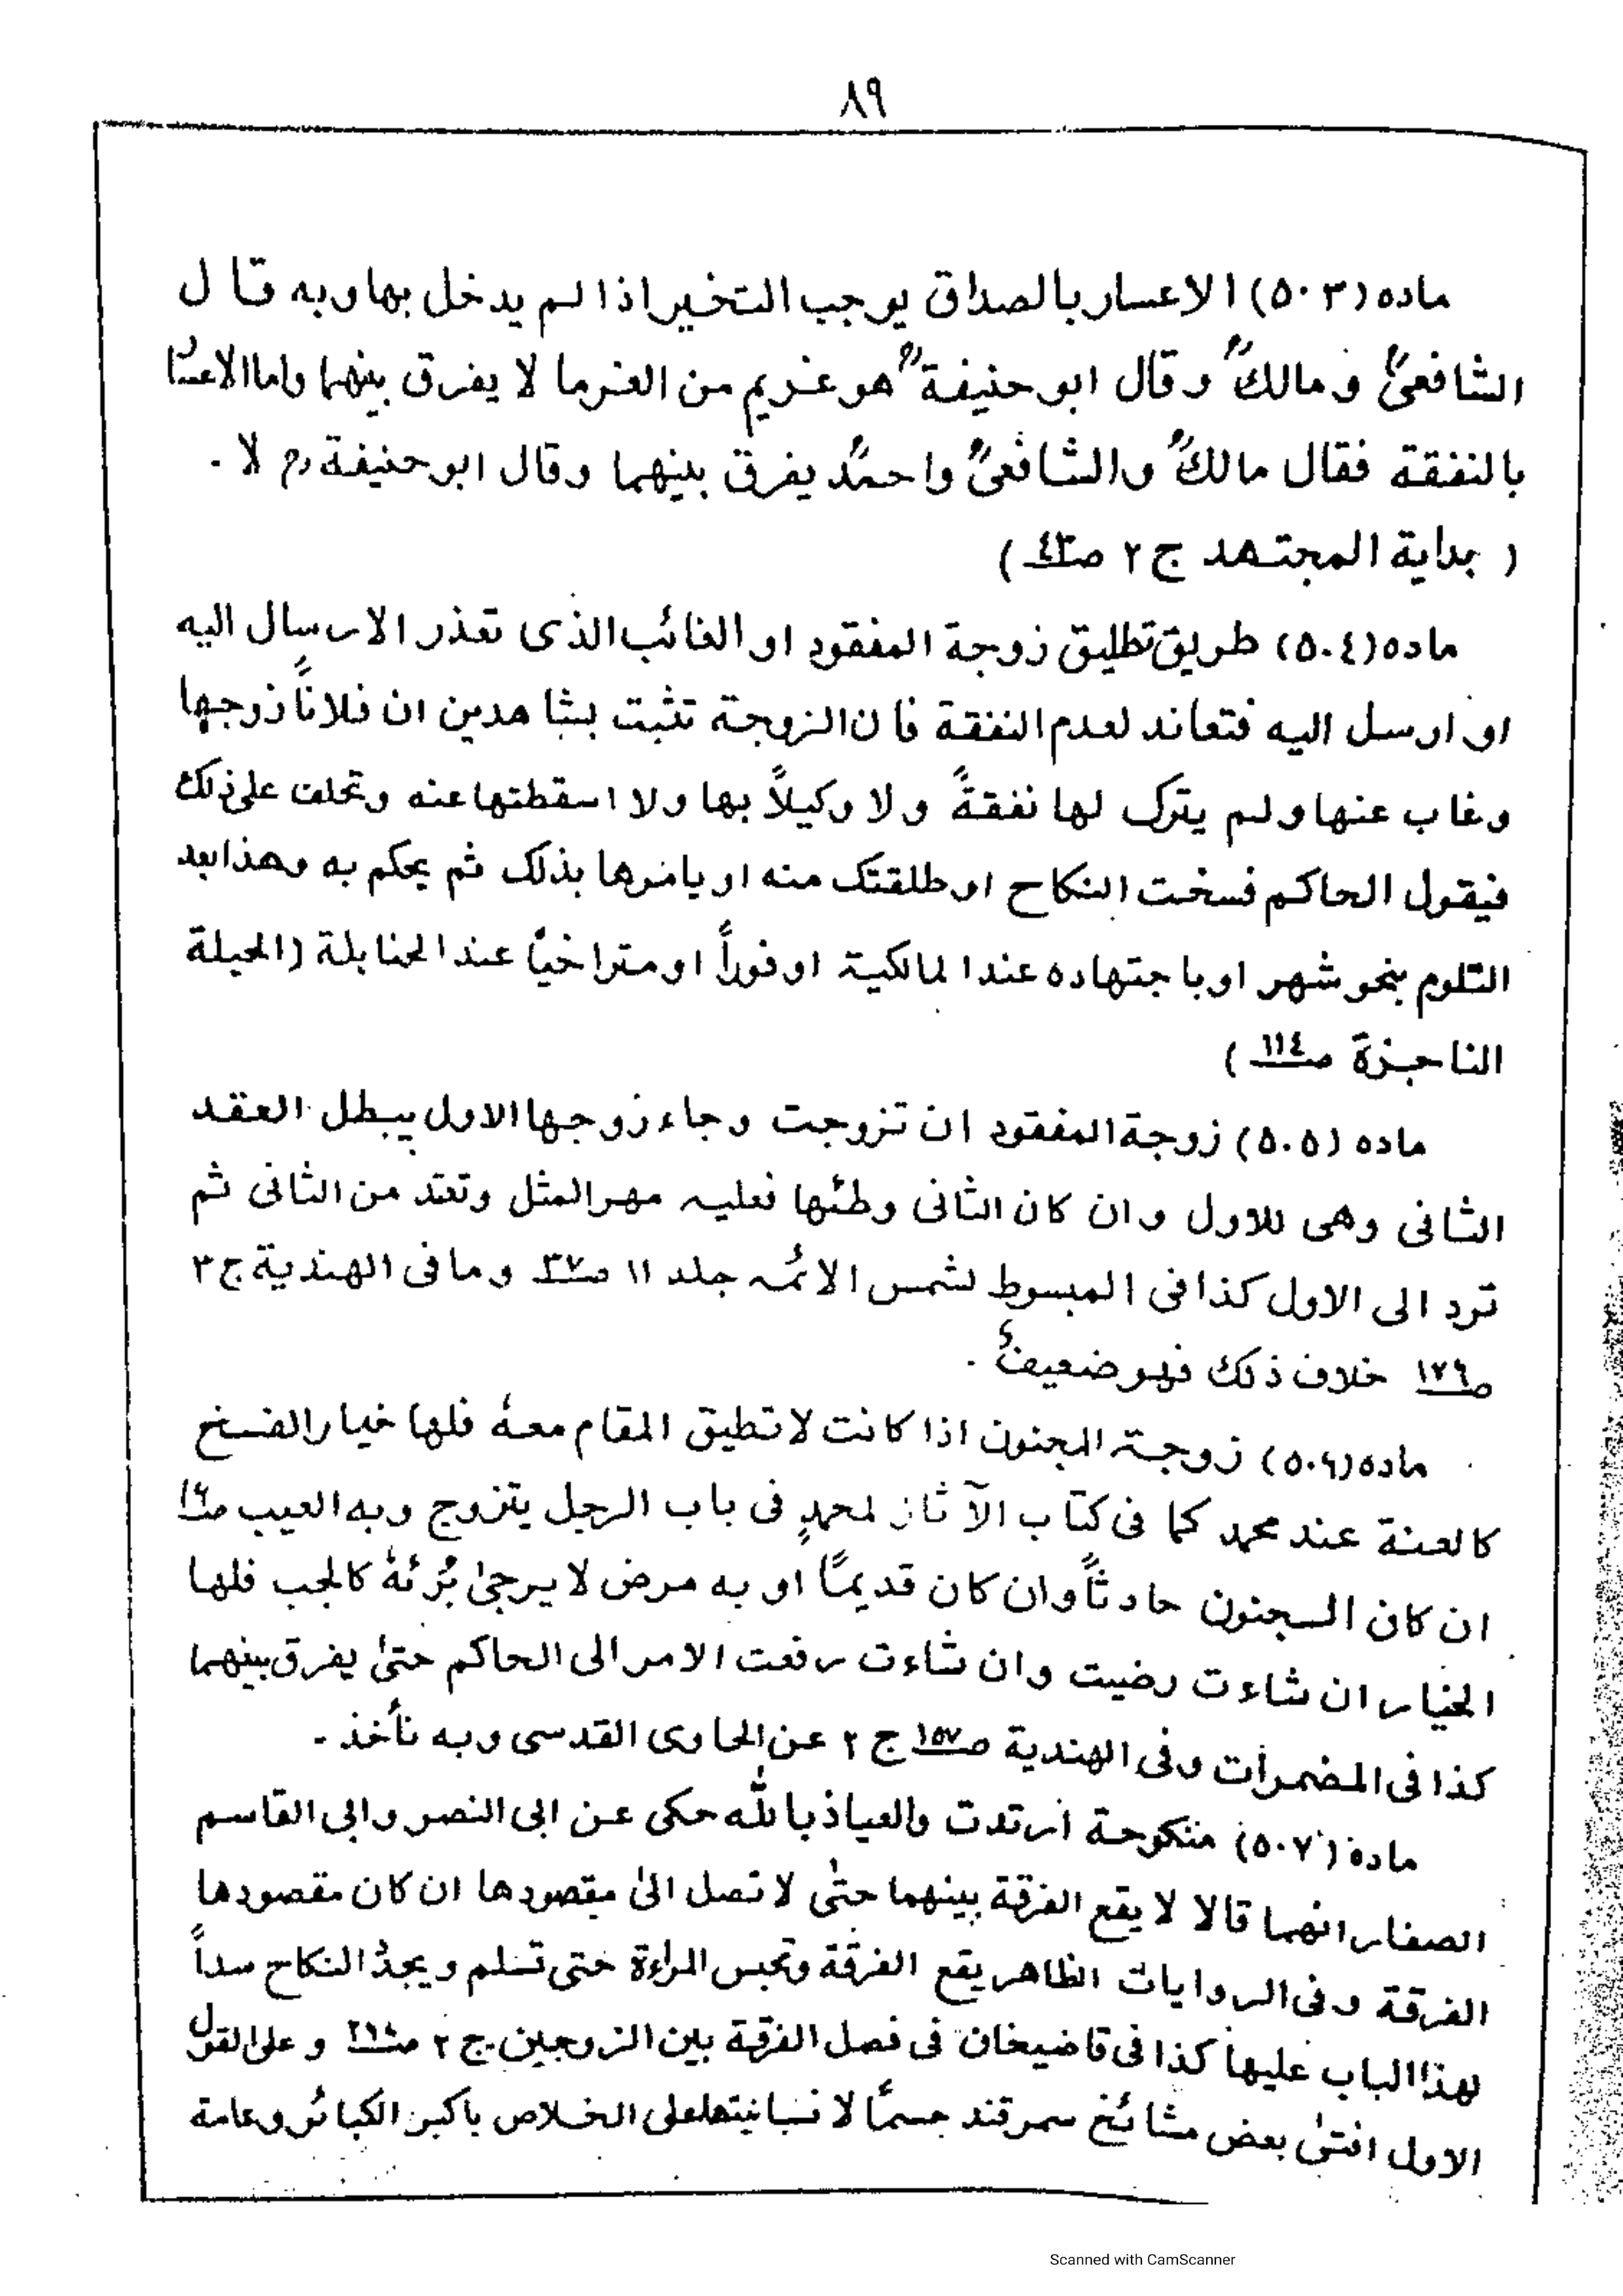 ٨٩
ماده (٥٠٣) الاعسار بالصداق يوجب التخير اذا لم يدخل بها وبه قال
الشافعیؒ ومالكؒ وقال ابو حنيفةؒ هو غريم من الغرما لا يفرق بينهما واما الاعسار
بالنفقة فقال مالكؒ والشافعیؒ واحمدؒ يفرق بينهما وقال ابو حنيفة رح لا .
( بداية المجتهد ج ٢ صـ٤٣ )
ماده (٥٠٤) طريق تطليق زوجة المفقود او الغائب الذی تعذر الارسال اليه
او ارسل اليه فتعاند لعدم النفقة فان الزوجة تثبت بشاهدين ان فلاناً زوجها
وغاب عنها ولم يترك لها نفقةً ولا وكيلاً بها ولا اسقطتها عنه وتحلف علی ذلك
فيقول الحاكم فسخت النكاح او طلقتك منه او يامرها بذلك ثم يحكم به وهذا بعد
التلوم بنحو شهر او باجتهاده عند المالكية او فوراً او متراخياً عند الحنابلة (الحيلة
الناجزة صـ١١٤ )
ماده (٥٠٥) زوجة المفقود ان تزوجت وجاء زوجها الاول يبطل العقد
الثانی وهی للاول وان كان الثانی وطئها فعليه مهر المثل وتعتد من الثانی ثم
ترد الی الاول كذا فی المبسوط لشمس الائمه جلد ١١ صـ٣٧ وما فی الهندية ج ٣
صـ١٧٦ خلاف ذلك فهو ضعيفٌ .
ماده (٥٠٦) زوجة المجنون اذا كانت لا تطيق المقام معهٗ فلها خيار الفسخ
كالعنة عند محمد كما فی كتاب الآثار لمحمدٍ فی باب الرجل يتزوج وبه العيب
ان كان الجنون حادثاً وان كان قديمًا او به مرض لا يرجیٰ بُرئهٗ كالجب فلها
الخيار ان شاءت رضيت وان شاءت رفعت الامر الی الحاكم حتیٰ يفرق بينهما
كذا فی المضمرات وفی الهندية صـ١٥٧ ج ٢ عن الحاوی القدسی وبه نأخذ .
مادة (٥٠٧) منكوحة ارتدت والعياذ باللّٰه حكی عن ابی النصر وابی القاسم
الصفار انهما قالا لا يقع الفرقة بينهما حتیٰ لا تصل الیٰ مقصودها ان كان مقصودها
الفرقة وفی الروايات الظاهر يقع الفرقة وتحبس المراءة حتی تسلم ويجدُ النكاح سداً
لهذا الباب عليها كذا فی قاضيخان فی فصل الفرقة بين الزوجين ج ٢ وعلی القول
الاول افتیٰ بعض مشائخ سمرقند حسمًا علی الخلاص باكبر الكبائر وعامة
Scanned with CamScanner